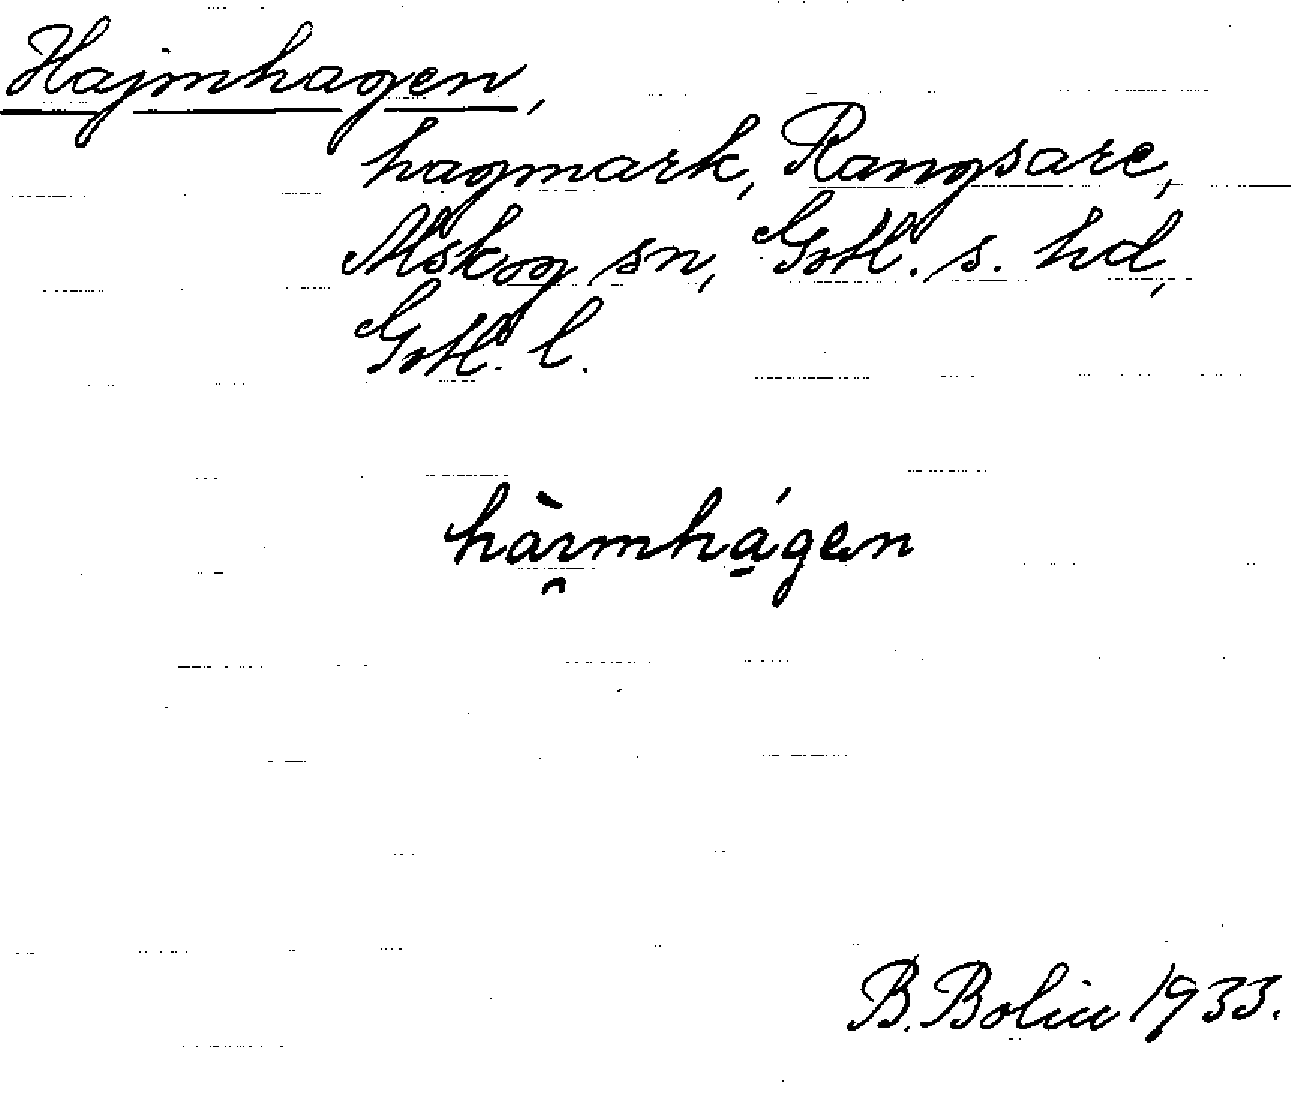 Hajmhagen,
hagmark, Rangsarve,
Alskog sn, Gotl. s. hd,
Gotl. l.
hàı̯mhá̱gen
B. Bolin 1933.